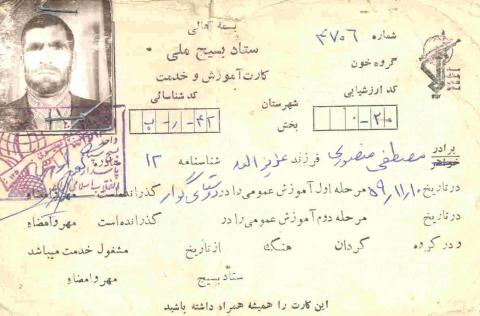 بسمه تعالی
ستاد بسیج ملی
کارت آموزش و خدمت
شماره ۴۷۰۶
گروه خون
کد شناسائی
کد ارزشیابی
۴۲ - ر - ب
شهرستان
بخش
۲۰ - ۰
برادر خواهر مصطفی منصوری فرزند عزیز الله شناسنامه ۱۲
در تاریخ ۵۹/۱۱/۱۰ مرحله اول آموزش عمومی را در گذرانده است مهر و امضاء
در تاریخ مرحله دوم آموزش عمومی را در گذرانده است مهر و امضاء
و در گروه گردان هنگ از تاریخ مشغول خدمت میباشد
ستاد بسیج مهر و امضاء
این کارت را همیشه همراه داشته باشید
واحد
پاسداران
انقلاب اسلامی